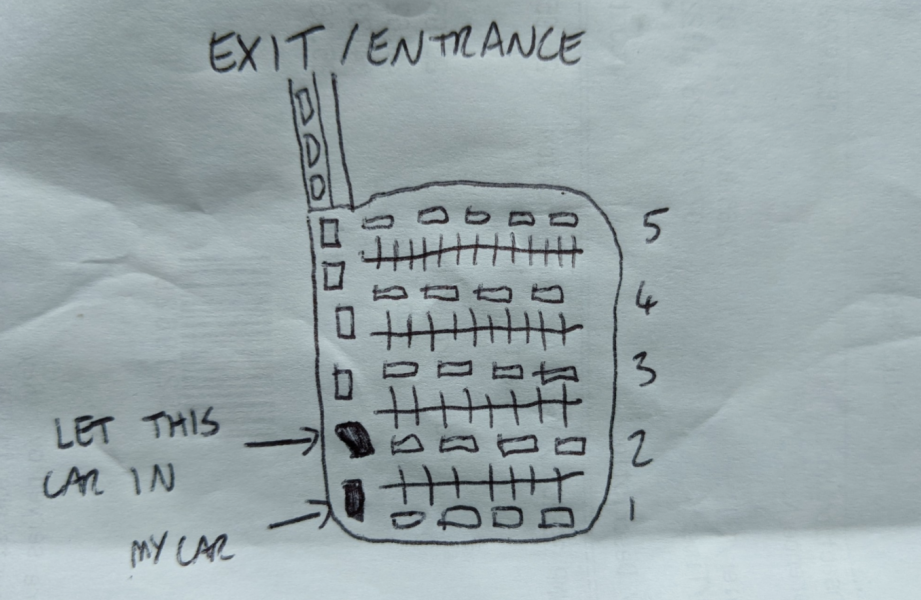 EXIT / ENTRANCE
5
4
3
LET THIS
CAR IN
2
1
MY CAR